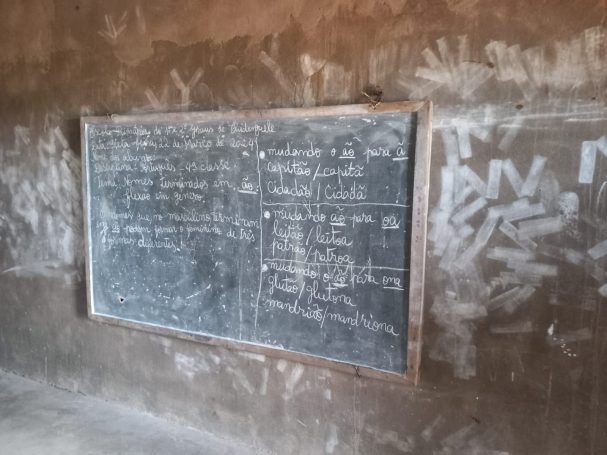 Escola Primária do 1º e 2º Graus de
de Março de 2024
Nome do
Disciplina: Português - 4ª classe
Tema: Nomes terminados em ão.
flexão em género.
nomes que no masculino terminam
em ão podem formar o feminino de três
formas diferentes:
• mudando o ão para ã
capitão/capitã
cidadão/cidadã
• mudando ão para oa
leitão/leitoa
patrão/patroa
• mudando o ão para ona
glutão/glutona
mandrião/mandriona